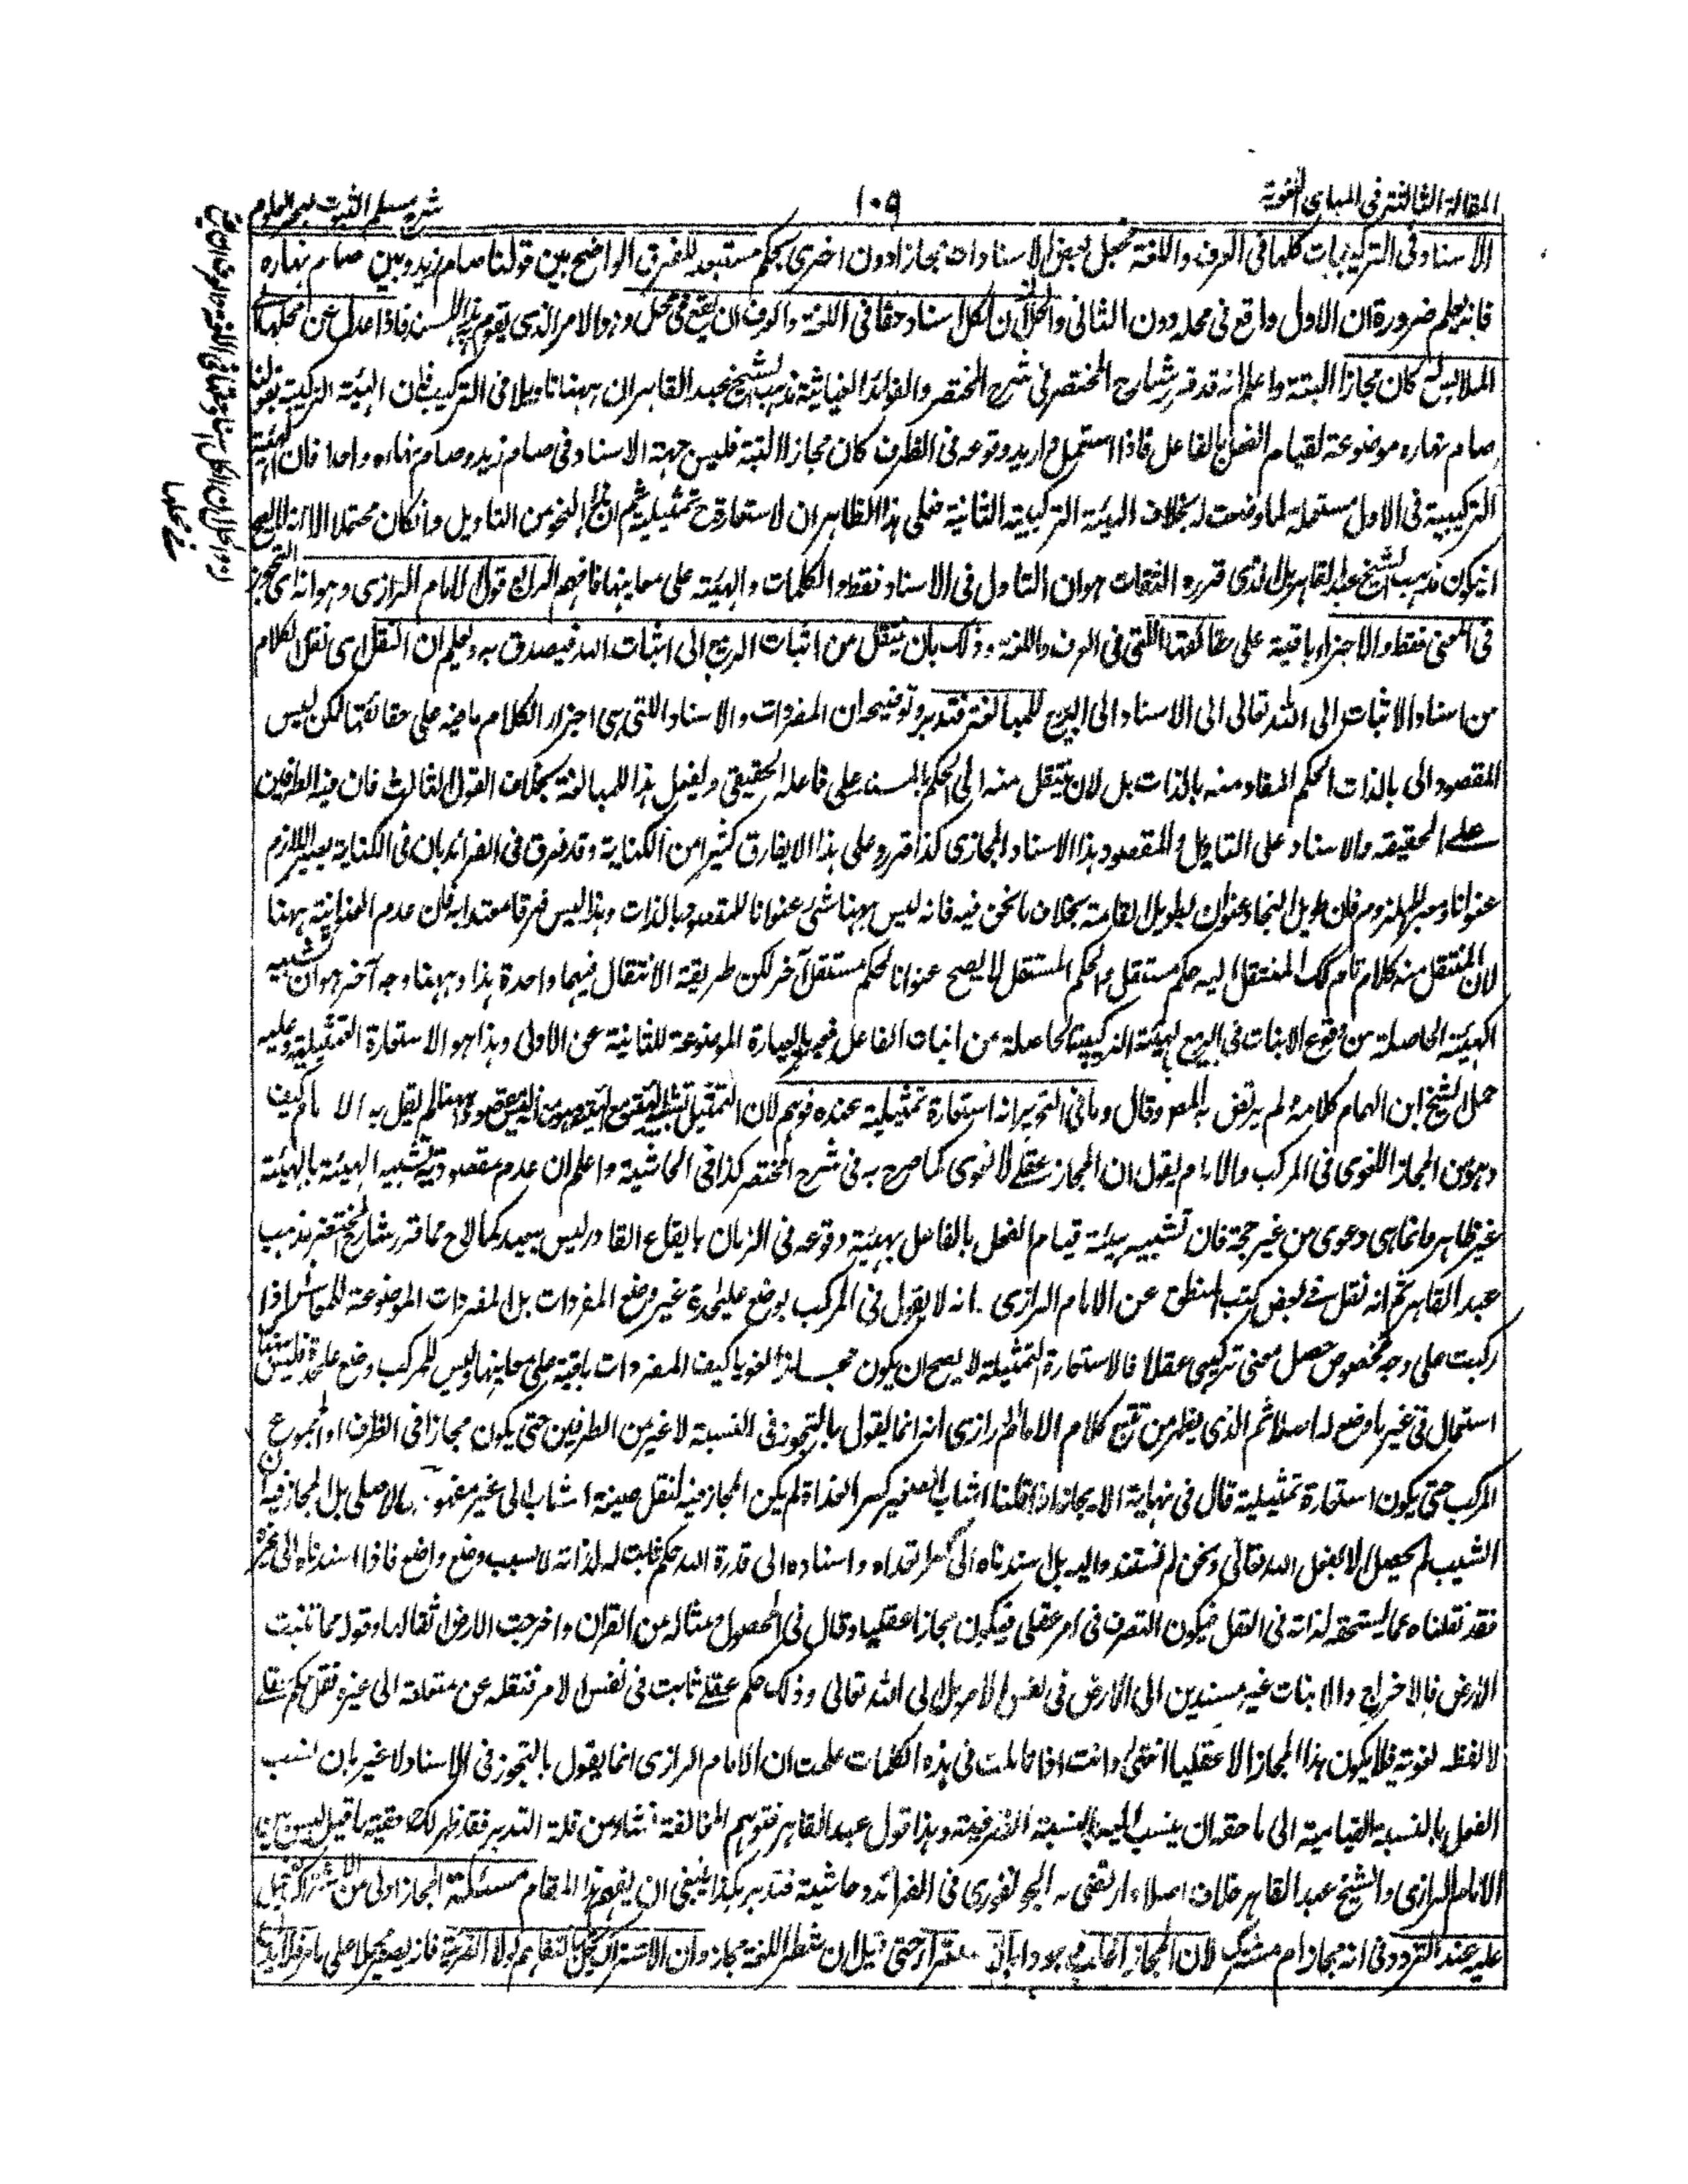 المقالة الثالثة فى المبادى اللغوية
١٠٩
شرح مسلم الثبوت لبحر العلوم
الاسناد فى التركيبات كلها فى العرف واللغة فجعل بعض الاسنادات مجازا دون اخرى تحكم مستبعد للفرق الواضح بين قولنا صام زيد وبين صام نهاره
فانه يعلم ضرورة ان الاول واقع فى محله دون الثانى والحل ان لكل اسناد حقا فى اللغة والعرف ان يقع فى محل وهو الامر الذى يقوم به المسند فاذا عدل عن محلها الى
الملابس كان مجازا البتة واعلم انه قد قرر شارح المختصر فى شرح المختصر والفوائد الغياثية مذهب الشيخ عبد القاهر ان ههنا تاويلا فى التركيب فان الهيئة التركيبية لقولنا
صام نهاره موضوعة لقيام الفعل بالفاعل فاذا استعمل واريد وقوعه فى الظرف كان مجازا البتة فليس جهة الاسناد فى صام زيد وصام نهاره واحدا فان الهيئة
التركيبية فى الاول مستعملة لما وضعت له بخلاف الهيئة التركيبية الثانية فعلى هذا الظاهر ان الاستعارة ح تمثيلية ثم ان هذا النحو من التاويل وان كان محتملا الا انه لا يصح
ان يكون مذهب الشيخ عبد القاهر بل الذى قرره الثقات هو ان التاول فى الاسناد فقط والكلمات والهيئة على معاينها فافهم الرابع قول الامام الرازى وهو انه اى التجوز
فى المعنى فقط والاجزاء باقية على حقائقها اللتى فى العرف واللغة وذلك بان ينتقل من اثبات الربيع الى اثبات الله فيصدق به وليعلم ان النقل اى نقل الكلام
من اسناد الاثبات الى الله تعالى الى الاسناد الى الربيع للمبالغة فتدبر وتوضيحه ان المفردات والاسناد اللتى هى اجزاء الكلام ماضية على حقائقها لكن ليس
المقصود الى بالذات الحكم المفاد منه بالذات بل لان ينتقل منه الى الحكم بالمسند على فاعله الحقيقى وليفعل هذا للمبالغة بخلاف القول الثالث فان فيه الطرفين
على الحقيقة والاسناد على التاويل والمقصود هذا الاسناد المجازى كذا قرر وعلى هذا لا يفارق كثيرا من الكناية وقد فرق فى الفرائد بان فى الكناية يصير اللازم
عنوانا ومعبرا للملزوم فان طويل النجاد عنوان لطويل القامة بخلاف ما نحن فيه فانه ليس ههنا شئ عنوانا للمقصود بالذات وهذا ليس فرقا معتدا به فان عدم العنوانية ههنا
لان المنتقل منه كلام تام كك المنتقل اليه حكم مستقل والحكم المستقل لا يصح عنوانا لحكم مستقل آخر لكن طريقة الانتقال فيهما واحدة هذا وههنا وجه آخر هو ان تشبيه
الهيئة الحاصلة من وقوع الانبات فى الربيع بالهيئة التركيبية الحاصلة من انبات الفاعل فعبر بالعبارة الموضوعة للثانية عن الاولى وهذا هو الاستعارة التمثيلية وعليه
حمل الشيخ ابن الهمام كلامه ولم يرتض به المص وقال وما فى التحرير انه استعارة تمثيلية عنده فوهم لان التمثيل ليس مقصودا ههنا لم يقل به الامام كيف
وهو من المجاز اللغوى فى المركب والامام يقول ان المجاز عقلى لا لغوى كما صرح به فى شرح المختصر كذا فى الحاشية واعلم ان عدم مقصودية تشبيه الهيئة بالهيئة
غير ظاهر وانما هى دعوى من غير حجة فان تشبيه هيئة قيام الفعل بالفاعل بهيئة وقوعه فى الزمان بايقاع القادر ليس ببعيد كما لاح مما قرر شارح المختصر مذهب
عبد القاهر ثم انه نقل فى بعض كتب المنطق عن الامام الرازى انه لا يقول فى المركب بوضع عليحدة غير وضع المفردات بل المفردات الموضوعة للمعانى اذا
ركبت على وجه مخصوص حصل معنى تركيبى عقلا فالاستعارة التمثيلة لا يصح ان يكون مجازا لغويا كيف المفردات باقية على معاينها وليس للمركب وضع عليحدة فليس فيها
استعمال فى غير ما وضع له اصلا ثم الذى يظهر من تتبع كلام الامام الرازى انه انما يقول بالتجوز فى النسبة لا غير من الطرفين حتى يكون مجازا فى الظرف او المجموع من
المركب حتى يكون استعارة تمثيلية قال فى نهاية الايجاز اذا قلنا اشاب الصغير كر الغداة لم يكن المجاز فيه لنقل صيغة اشاب الى غير مفهومه الاصلى بل المجاز فيه ان
الشيب لم يحصل الا بفعل الله تعالى ونحن لم نسنده اليه بل اسندناه الى كر الغداة واسناده الى قدرة الله حكم ثابت له لذاته لا بسبب وضع واضع فاذا اسندناه الى غيره
فقد نقلناه عما يستحقه لذاته فى العقل فيكون التصرف فى امر عقلى فيكون مجازا عقليا وقال فى المحصول مثاله من القران واخرجت الارض اثقالها وقوله مما تنبت
الارض فالاخراج والانبات غير مسندين الى الارض فى نفس الامر بل الى الله تعالى وذلك حكم عقلى ثابت فى نفس الامر فنقله عن متعلقه الى غيره نقل لحكم عقلى
لا لفظة لغوية فلا يكون هذا المجاز الا عقليا انتهى وانت اذا تاملت فى هذه الكلمات علمت ان الامام الرازى انما يقول بالتجوز فى الاسناد لا غير بان نسب
الفعل بالنسبة القيامية الى ما حقه ان ينسب اليه بالنسبة الظرفية وهذا قول عبد القاهر فتوهم المخالفة نشاء من قلة التدبر فقد ظهر لك حقية ما قيل ليس بين
الامام الرازى والشيخ عبد القاهر خلاف اصلا وارتضى به الجونفورى فى الفرائد وحاشية فتدبر هكذا ينبغى ان يفهم هذا المقام مسئلة المجاز اولى من الاشتراك فيحمل
عليه عند التردد فى انه مجاز ام مشترك لان المجاز اغلب وجودا حتى قيل ان شطر اللغة مجاز وان الاشتراك يخل بالتفاهم لولا القرينة فانه يصير مجملا